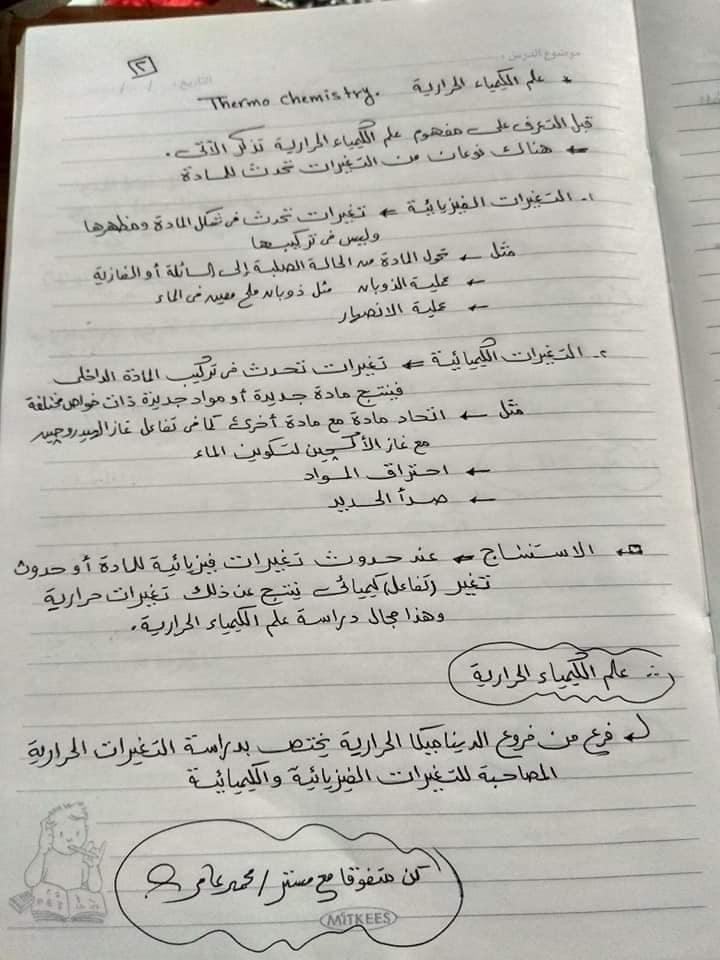 موضوع الدرس :
[٣]
التاريخ : / /
* علم الكيمياء الحرارية Thermo chemistry.
قبل التعرف على مفهوم علم الكيمياء الحرارية نذكر الآتى .
← هناك نوعان من التغيرات تحدث للمادة
١- التغيرات الفيزيائية ← تغيرات تحدث فى شكل المادة ومظهرها
وليس فى تركيبها
مثل ← تحول المادة من الحالة الصلبة إلى السائلة أو الغازية
← عملية الذوبان مثل ذوبان ملح معين فى الماء
← عملية الانصهار
٢- التغيرات الكيميائية ← تغيرات تحدث فى تركيب المادة الداخلى
فينتج مادة جديدة أو مواد جديدة ذات خواص مختلفة
مثل ← اتحاد مادة مع مادة أخرى كما فى تفاعل غاز الهيدروجين
مع غاز الأكسجين لتكوين الماء
← احتراق المواد
← صدأ الحديد
الاستنتاج ← عند حدوث تغيرات فيزيائية للمادة أو حدوث
تغير (تفاعل) كيميائى ينتج عن ذلك تغيرات حرارية
وهذا مجال دراسة علم الكيمياء الحرارية .
∴ علم الكيمياء الحرارية
فرع من فروع الديناميكا الحرارية يختص بدراسة التغيرات الحرارية
المصاحبة للتغيرات الفيزيائية والكيميائية
كن متفوقا مع مستر / محمد عامر
MITKEES